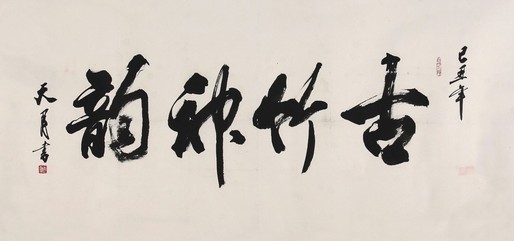 己丑年
古竹神韵
天書